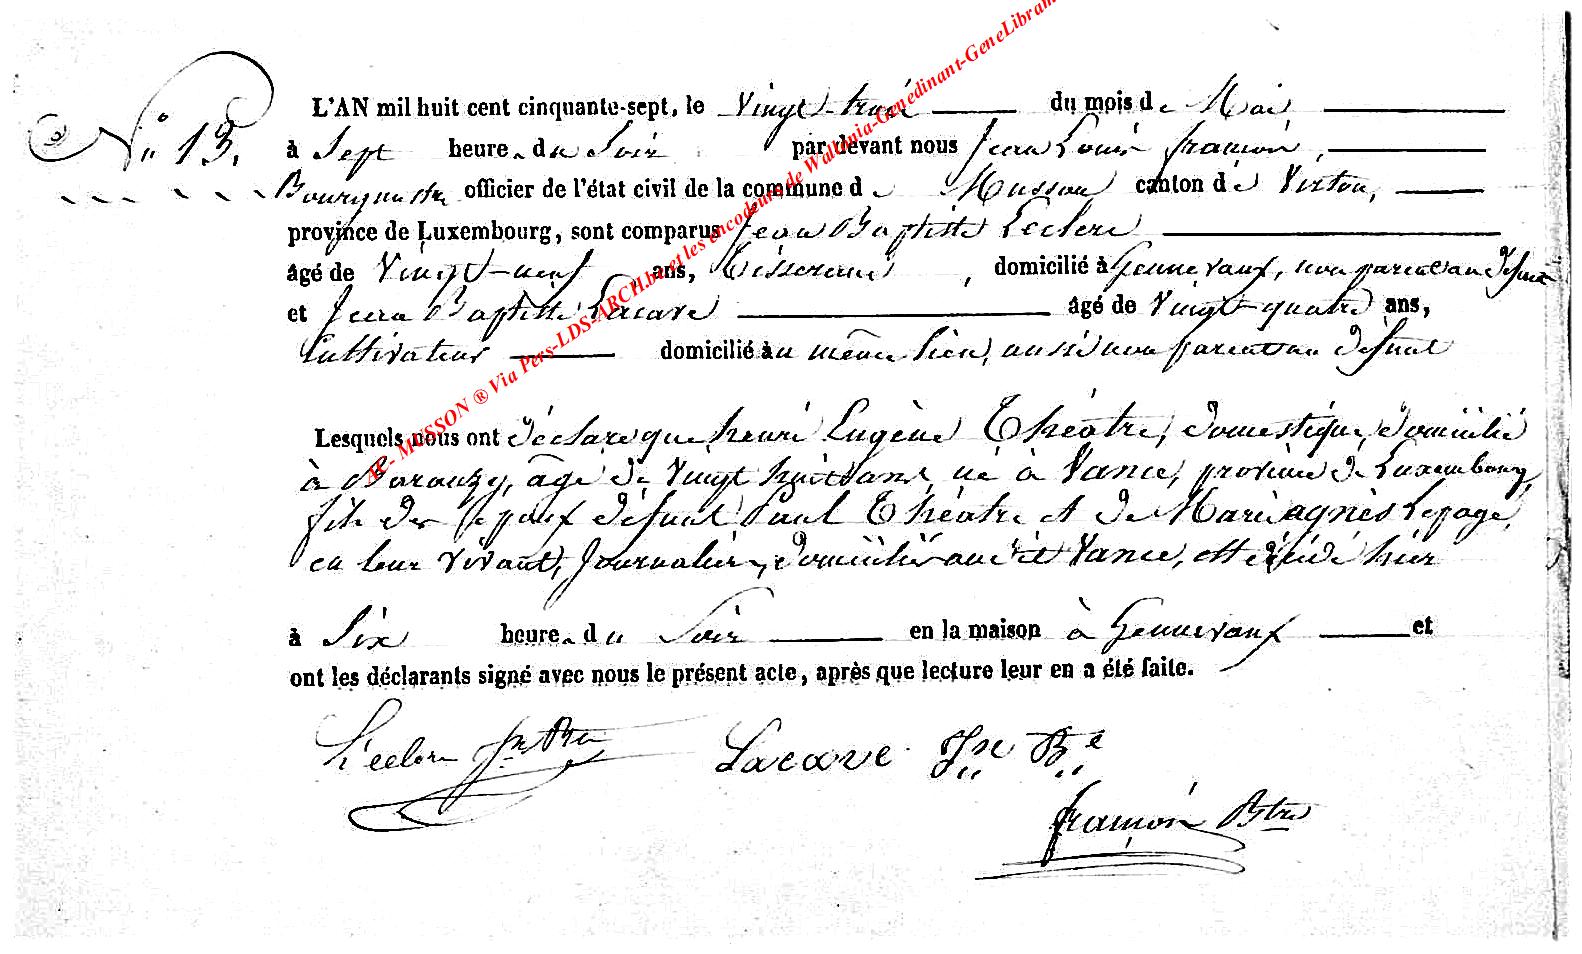 N° 13.
L'AN mil huit cent cinquante-sept, le Vingt-trois du mois de Mai,
à Sept heures du Soir par devant nous Jean Louis françois,
Bourgmestre officier de l'état civil de la commune de Musson canton de Virton,
province de Luxembourg, sont comparus Jean Baptiste Leclere
âgé de Vingt-neuf ans, tisserand, domicilié à Gennevaux, non parent au défunt
et Jean Baptiste Lacave âgé de Vingt-quatre ans,
Cultivateur domicilié au même lieu, aussi non parent au défunt
Lesquels nous ont déclaré que henri Eugène Théâtre, domestique, domicilié
à Baranzy, âgé de Vingt huit ans, né à Vance, province de Luxembourg,
fils des époux défunt Paul Théâtre et de Marie agnès Lepage,
en leur vivant, Journaliers, domiciliés audit Vance, est décédé hier
à Six heures du Soir en la maison à Gennevaux et
ont les déclarants signé avec nous le présent acte, après que lecture leur en a été faite.
Leclere Jn Bte Lacave Jn Bte
françois Btre
AC- MUSSON ® Via Pers-LDS-ARCH.be et les encodeurs de Wallonia-Genedinant-GeneLibram